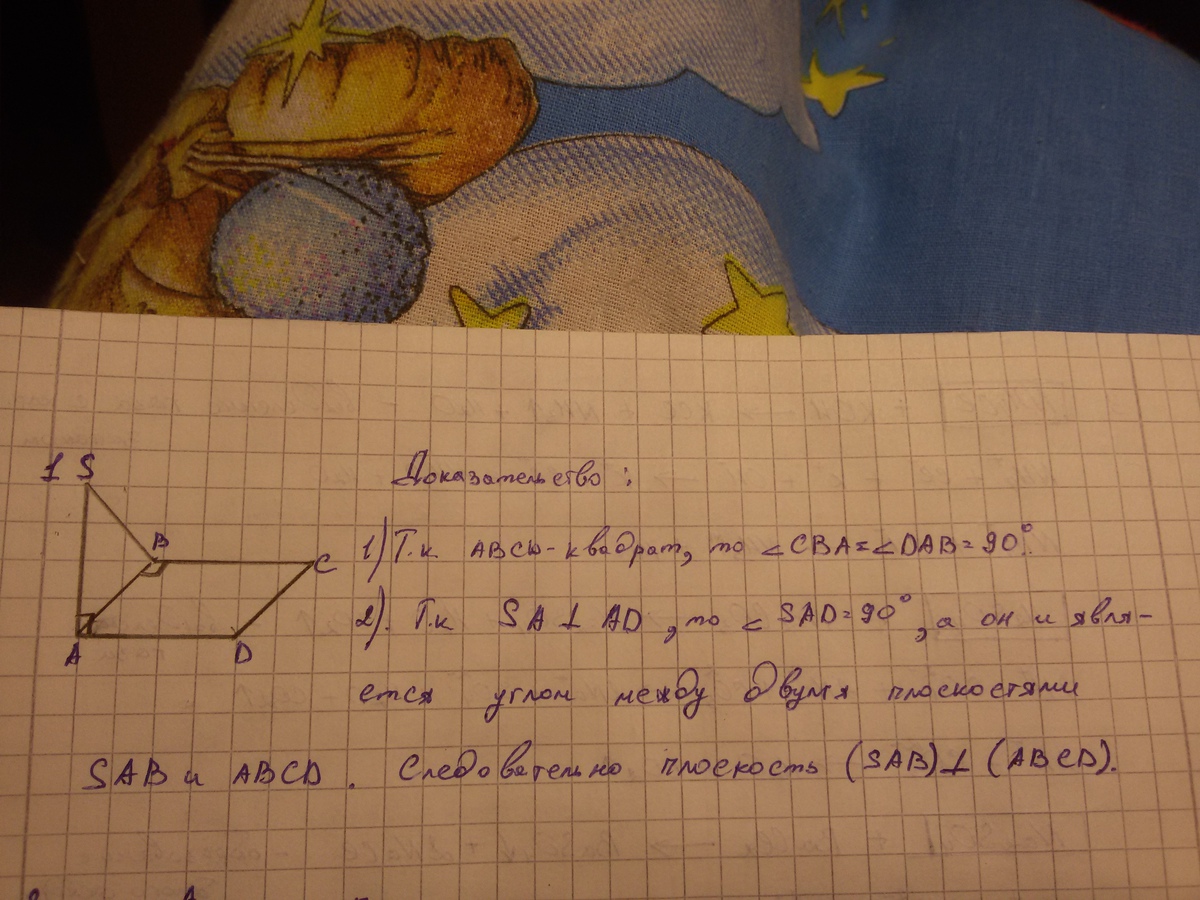 1 S
Доказательство:
B
C
A
D
1) Т.к ABCD-квадрат, то ∠CBA=∠DAB=90°.
2). Т.к SA⊥AD, то ∠SAD=90°, а он и явля-
ется углом между двумя плоскостями
SAB и ABCD. Следовательно плоскость (SAB)⊥(ABCD).